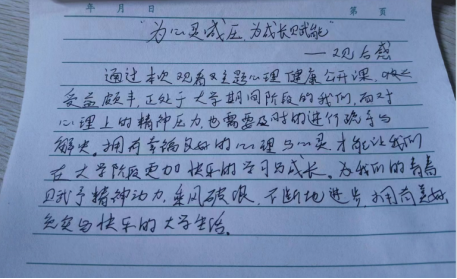 年 月 日 第 页
"为心灵减压 为成长赋能"
——观后感
通过本次观看主题心理健康公开课,
受益颇丰,正处于大学期间阶段的我们,面对
心理上的精神压力,也需要及时的进行疏导与
解决。拥有幸福良好的心理与心灵才能让我们
在大学阶段更加快乐的学习与成长。为我们的青春
赋予精神动力,乘风破浪,不断地进步,拥有美好
充实与快乐的大学生活。